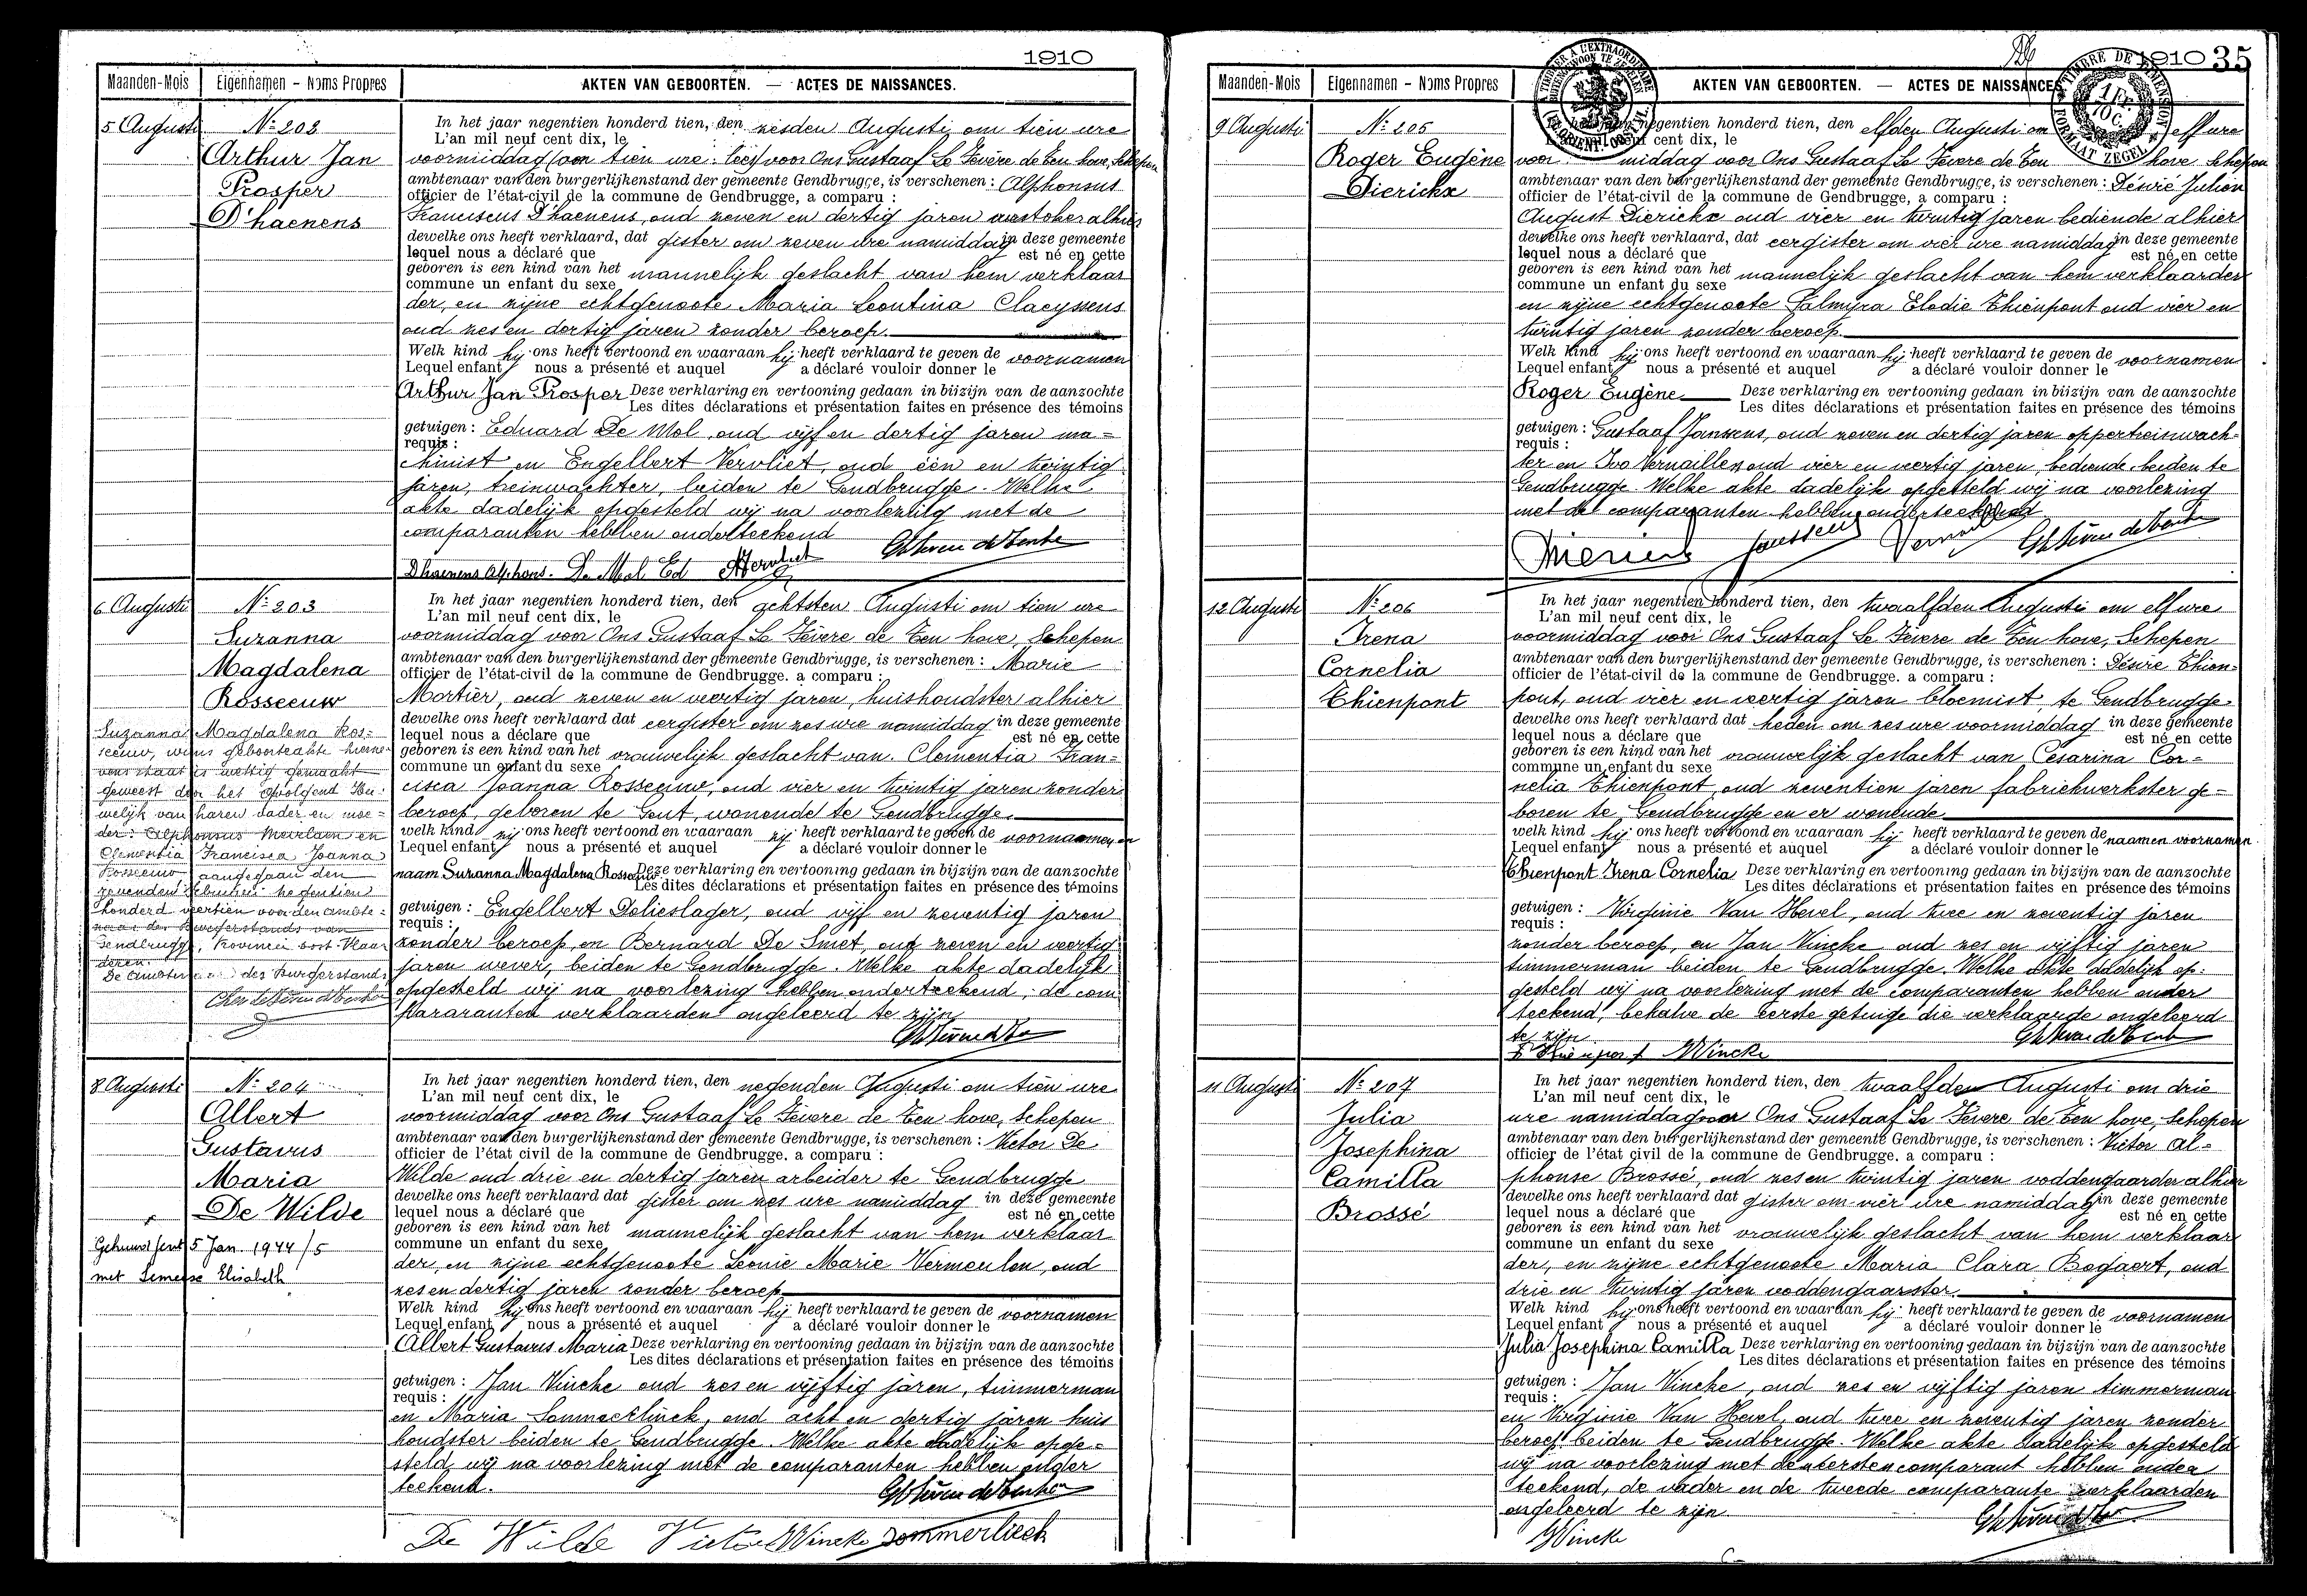 1910
Maanden-Mois Eigennamen - Noms Propres AKTEN VAN GEBOORTEN. — ACTES DE NAISSANCES.
5 Augusti
No 202
Arthur Jan
Prosper
D'haenens
In het jaar negentien honderd tien, den zesden Augusti om tien ure
L'an mil neuf cent dix, le
voormiddag (om tien ure: lees) voor Ons Gustaaf Le Fèvere de Ten hove, Schepen
ambtenaar van den burgerlijkenstand der gemeente Gendbrugge, is verschenen : Alphonsus
officier de l'état-civil de la commune de Gendbrugge, a comparu :
Franciscus D'haenens, oud zeven en dertig jaren alhier
dewelke ons heeft verklaard, dat gister om zeven ure namiddag in deze gemeente
lequel nous a déclaré que est né en cette
geboren is een kind van het mannelijk geslacht van hem verklaar
commune un enfant du sexe
der, en zijne echtgenoote Maria Leontina Claeyssens
oud zes en dertig jaren zonder beroep.
Welk kind hij ons heeft vertoond en waaraan hij heeft verklaard te geven de voornamen
Lequel enfant nous a présenté et auquel a déclaré vouloir donner le
Arthur Jan Prosper Deze verklaring en vertooning gedaan in bijzijn van de aanzochte
Les dites déclarations et présentation faites en présence des témoins
getuigen : Eduard De Mol, oud vijf en dertig jaren ma=
requis :
chinist en Engelbert Vervliet, oud één en twintig
jaren, treinwachter, beiden te Gendbrugge. Welke
akte dadelijk opgesteld wij na voorlezing met de
comparanten hebben onderteekend
D'haenens Alphons. De Mol Ed
6 Augusti
No 203
Suzanna
Magdalena
Rosseeuw
Suzanna Magdalena Ros=
seeuw, wiens geboorteakte hierne=
vens staat is wettig gemaakt
geweest door het opvolgend Hu=
welijk van haren vader en moe=
der: Alphonsus en
Clementia Francisca Joanna
Rosseeuw aangegaan den
negentien
honderd veertien voor den ambte=
naar des Burgerstands van
Gendbrugge, Provincie oost-Vlaan
deren.
De ambtenaar des Burgerstands
In het jaar negentien honderd tien, den achtsten Augusti om tien ure
L'an mil neuf cent dix, le
voormiddag voor Ons Gustaaf Le Fèvere de Ten hove, Schepen
ambtenaar van den burgerlijkenstand der gemeente Gendbrugge, is verschenen : Marie
officier de l'état-civil de la commune de Gendbrugge. a comparu :
Mortier, oud zeven en veertig jaren, huishoudster alhier
dewelke ons heeft verklaard dat eergister om zes ure namiddag in deze gemeente
lequel nous a déclare que est né en cette
geboren is een kind van het vrouwelijk geslacht van Clementia Fran=
commune un enfant du sexe
cisca Joanna Rosseeuw, oud vier en twintig jaren zonder
beroep, geboren te Gent, wonende te Gendbrugge.
welk kind zij ons heeft vertoond en waaraan zij heeft verklaard te geven de voornamen en
Lequel enfant nous a présenté et auquel a déclaré vouloir donner le
naam Suzanna Magdalena Rosseeuw Deze verklaring en vertooning gedaan in bijzijn van de aanzochte
Les dites déclarations et présentation faites en présence des témoins
getuigen : Engelbert Delieslager, oud vijf en zeventig jaren
requis :
zonder beroep, en Bernard De Smet, oud zeven en veertig
jaren wever, beiden te Gendbrugge. Welke akte dadelijk
opgesteld wij na voorlezing hebben onderteekend; de com
pararanten verklaarden ongeleerd te zijn
8 Augusti
No 204
Albert
Gustavus
Maria
De Wilde
Gehuwd Gent 5 Jan. 1944/5
met Elisabeth
In het jaar negentien honderd tien, den negenden Augusti om tien ure
L'an mil neuf cent dix, le
voormiddag voor Ons Gustaaf Le Fèvere de Ten hove, Schepen
ambtenaar van den burgerlijkenstand der gemeente Gendbrugge, is verschenen : Victor De
officier de l'état civil de la commune de Gendbrugge. a comparu :
Wilde oud drie en dertig jaren arbeider te Gendbrugge
dewelke ons heeft verklaard dat gister om zes ure namiddag in deze gemeente
lequel nous a déclaré que est né en cette
geboren is een kind van het mannelijk geslacht van hem verklaar
commune un enfant du sexe
der, en zijne echtgenoote Leonie Marie Vermeulen, oud
zes en dertig jaren zonder beroep
Welk kind hij ons heeft vertoond en waaraan hij heeft verklaard te geven de voornamen
Lequel enfant nous a présenté et auquel a déclaré vouloir donner le
Albert Gustavus Maria Deze verklaring en vertooning gedaan in bijzijn van de aanzochte
Les dites déclarations et présentation faites en présence des témoins
getuigen : Jan Vincke oud zes en vijftig jaren, timmerman
requis :
en Maria oud acht en dertig jaren huis
houdster beiden te Gendbrugge. Welke akte dadelijk opge=
steld wij na voorlezing met de comparanten hebben onder
teekend.
De Wilde Victor JVincke
1910 35
Maanden-Mois Eigennamen - Noms Propres AKTEN VAN GEBOORTEN. — ACTES DE NAISSANCES.
9 Augusti
No 205
Roger Eugène
Dierickx
In het jaar negentien honderd tien, den elfden Augusti om elf ure
L'an mil neuf cent dix, le
voor middag voor Ons Gustaaf Le Fèvere de Ten hove Schepen
ambtenaar van den burgerlijkenstand der gemeente Gendbrugge, is verschenen : Désiré Julien
officier de l'état-civil de la commune de Gendbrugge, a comparu :
August Dierickx oud vier en twintig jaren bediende alhier
dewelke ons heeft verklaard, dat eergister om vier ure namiddag in deze gemeente
lequel nous a déclaré que est né en cette
geboren is een kind van het mannelijk geslacht van hem verklaarder
commune un enfant du sexe
en zijne echtgenoote Palmyra Elodie Thienpont oud vier en
twintig jaren zonder beroep
Welk kind hij ons heeft vertoond en waaraan hij heeft verklaard te geven de voornamen
Lequel enfant nous a présenté et auquel a déclaré vouloir donner le
Roger Eugène Deze verklaring en vertooning gedaan in bijzijn van de aanzochte
Les dites déclarations et présentation faites en présence des témoins
getuigen : Gustaaf Janssens, oud zeven en dertig jaren oppertreinwach=
requis :
ter en Ivo Vernaillen oud vier en veertig jaren, bediende beiden te
Gendbrugge. Welke akte dadelijk opgesteld wij na voorlezing
met de comparanten hebben onderteekend
12 Augusti
No 206
Irena
Cornelia
Thienpont
In het jaar negentien honderd tien, den twaalfden Augusti om elf ure
L'an mil neuf cent dix, le
voormiddag voor Ons Gustaaf Le Fèvere de Ten hove, Schepen
ambtenaar van den burgerlijkenstand der gemeente Gendbrugge, is verschenen : Désiré Thien=
officier de l'état-civil de la commune de Gendbrugge. a comparu :
pont, oud vier en veertig jaren bloemist, te Gendbrugge
dewelke ons heeft verklaard dat heden om zes ure voormiddag in deze gemeente
lequel nous a déclaré que est né en cette
geboren is een kind van het vrouwelijk geslacht van Cesarina Cor=
commune un enfant du sexe
nelia Thienpont, oud zeventien jaren fabriekwerkster ge=
boren te Gendbrugge en er wonende
welk kind hij ons heeft vertoond en waaraan hij heeft verklaard te geven de naamen voornamen
Lequel enfant nous a présenté et auquel a déclaré vouloir donner le
Thienpont Irena Cornelia Deze verklaring en vertooning gedaan in bijzijn van de aanzochte
Les dites déclarations et présentation faites en présence des témoins
getuigen : Virginie Van Hevel, oud twee en zeventig jaren
requis :
zonder beroep, en Jan Vincke oud zes en vijftig jaren
timmerman beiden te Gendbrugge. Welke akte dadelijk op=
gesteld wij na voorlezing met de comparanten hebben onder
teekend, behalve de eerste getuige die verklaarde ongeleerd
te zijn
D Thienpont JVincke
11 Augusti
No 207
Julia
Josephina
Camilla
Brossé
In het jaar negentien honderd tien, den twaalfden Augusti om drie
L'an mil neuf cent dix, le
ure namiddag voor Ons Gustaaf Le Fèvere de Ten hove, Schepen
ambtenaar van den burgerlijkenstand der gemeente Gendbrugge, is verschenen : Victor Al=
officier de l'état civil de la commune de Gendbrugge. a comparu :
phonse Brossé, oud zes en twintig jaren voddengaarder alhier
dewelke ons heeft verklaard dat gister om vier ure namiddag in deze gemeente
lequel nous a déclaré que est né en cette
geboren is een kind van het vrouwelijk geslacht van hem verklaar
commune un enfant du sexe
der, en zijne echtgenoote Maria Clara Bogaert, oud
drie en twintig jaren voddengaarster.
Welk kind hij ons heeft vertoond en waaraan hij heeft verklaard te geven de voornamen
Lequel enfant nous a présenté et auquel a déclaré vouloir donner le
Julia Josephina Camilla Deze verklaring en vertooning gedaan in bijzijn van de aanzochte
Les dites déclarations et présentation faites en présence des témoins
getuigen : Jan Vincke, oud zes en vijftig jaren timmerman
requis :
en Virginie Van Hevel, oud twee en zeventig jaren zonder
beroep beiden te Gendbrugge. Welke akte dadelijk opgesteld
wij na voorlezing met den eersten comparant hebben onder
teekend, de vader en de tweede comparante verklaarden
ongeleerd te zijn
JVincke